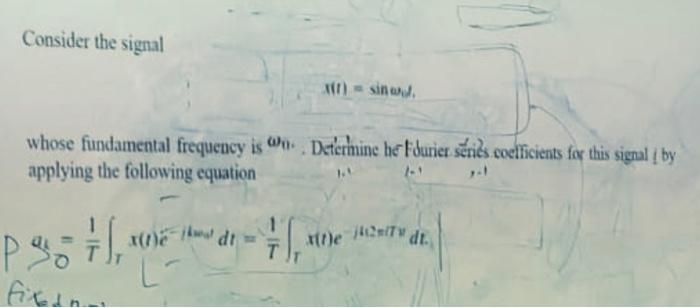 Consider the signal
x(t) = sin ω₀t,
whose fundamental frequency is ω₀. . Determine he Fourier series coefficients for this signal i by
applying the following equation
aₖ = 1/T ∫_T x(t)e^{-jkω₀t} dt = 1/T ∫_T x(t)e^{-jk(2π/T)t} dt.